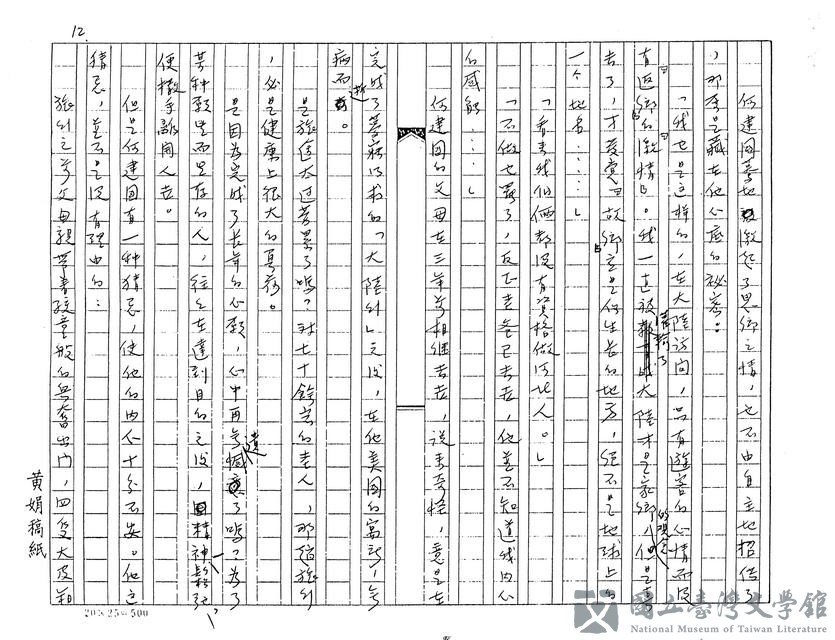 12.
何建國驀地激起了思鄉之情，也不由自主地招供了
，那原是藏在他心底的秘密。
「我也是這樣的，在大陸訪問，只有遊客的心情而沒
有返鄉的激情。我一直被灌輸了大陸才是家鄉的觀念，但是
去了，才發覺故鄉應是你生長的地方，絕不是地球上的
一个地名……」
「看來我们倆都沒有資格做河北人。」
「不做也罷了，反正老爸已去世，他並不知道我內心
的感觸……」
何建國的父母在三年前相繼去世，說來奇怪，竟是在
完成了夢寐以求的「大陸行」之後，在他美國的寓所，無
病而逝。
是旅途太过勞累了嗎？对七十餘歲的老人，那趟旅行
，必是健康上很大的負荷。
是因為完成了長年的心願，心中再無遺憾了嗎？為了
某种願望而生存的人，往往在達到目的之後，因精神鬆弛，
便撒手離開人世。
但是何建國有一种猜忌，使他的內心十分不安。他之
猜忌，並不是沒有理由的：
旅行之前父母親帶著孩童般的興奮出門，四隻大皮箱
黃娟稿紙
20×25=500
國立臺灣文學館
National Museum of Taiwan Literature